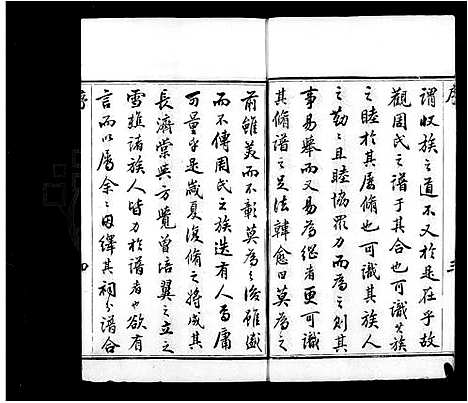 序
三
謂收族之道不又於是在乎故
觀周氏之譜于其合也可識其族
之睦於其屬脩也可識其族人
之勤之勤且睦協眾力而為之則其
事易舉而又易為繼者更可識
其脩譜之足法韓愈曰莫為之
前雖美而不彰莫為之後雖盛
而不傳周氏之族迭有人焉庸
可量乎是歲夏復脩之將成其
長濟棠興方覺曾培翼之立之
雪樵諸族人皆力於譜者也欲有
言而以屬余余因繹其祠分譜合
序
四